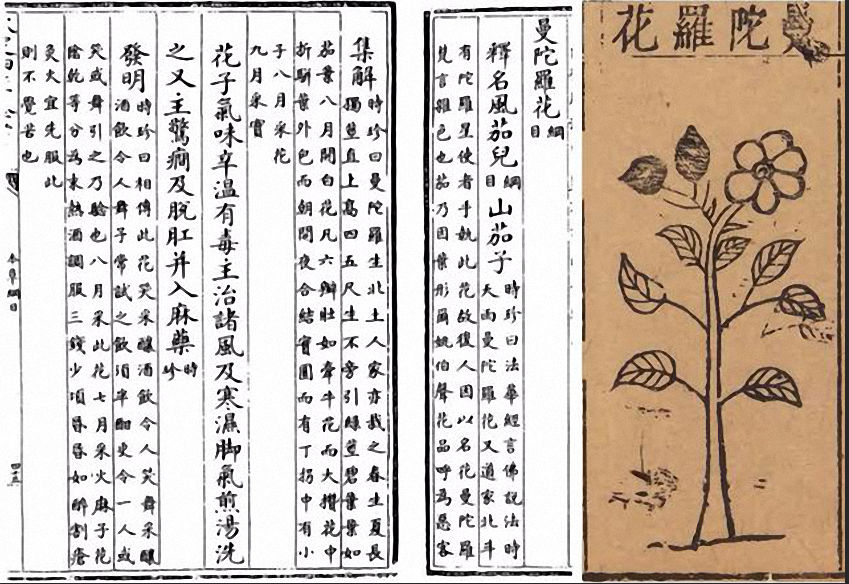 曼陀羅花
曼陀羅花 綱目
釋名風茄兒 綱目 山茄子 時珍曰法華經言佛說法時
天雨曼陀羅花又道家北斗
有陀羅星使者手執此花故後人因以名花曼陀羅
梵言雜色也茄乃因葉形爾姚伯聲花品呼為惡客
集解 時珍曰曼陀羅生北土人家亦栽之春生夏長
獨莖直上高四五尺生不旁引綠莖碧葉葉如
茄葉八月開白花凡六瓣壯如牽牛花而大攢花中
折駢葉外包而朝開夜合結實圓而有丁拐中有小
子八月采花
九月采實
花子氣味辛溫有毒主治諸風及寒濕脚氣煎湯洗
之又主驚癇及脫肛并入麻藥 時珍
發明 時珍曰相傳此花笑采釀酒飲令人笑舞采釀
酒飲令人舞子常試之飲須半酣更令一人或
笑或舞引之乃驗也八月采此花七月采火麻子花
陰乾等分為末熱酒調服三錢少頃昏昏如醉割瘡
灸火宜先服此
則不覺苦也
本草綱目